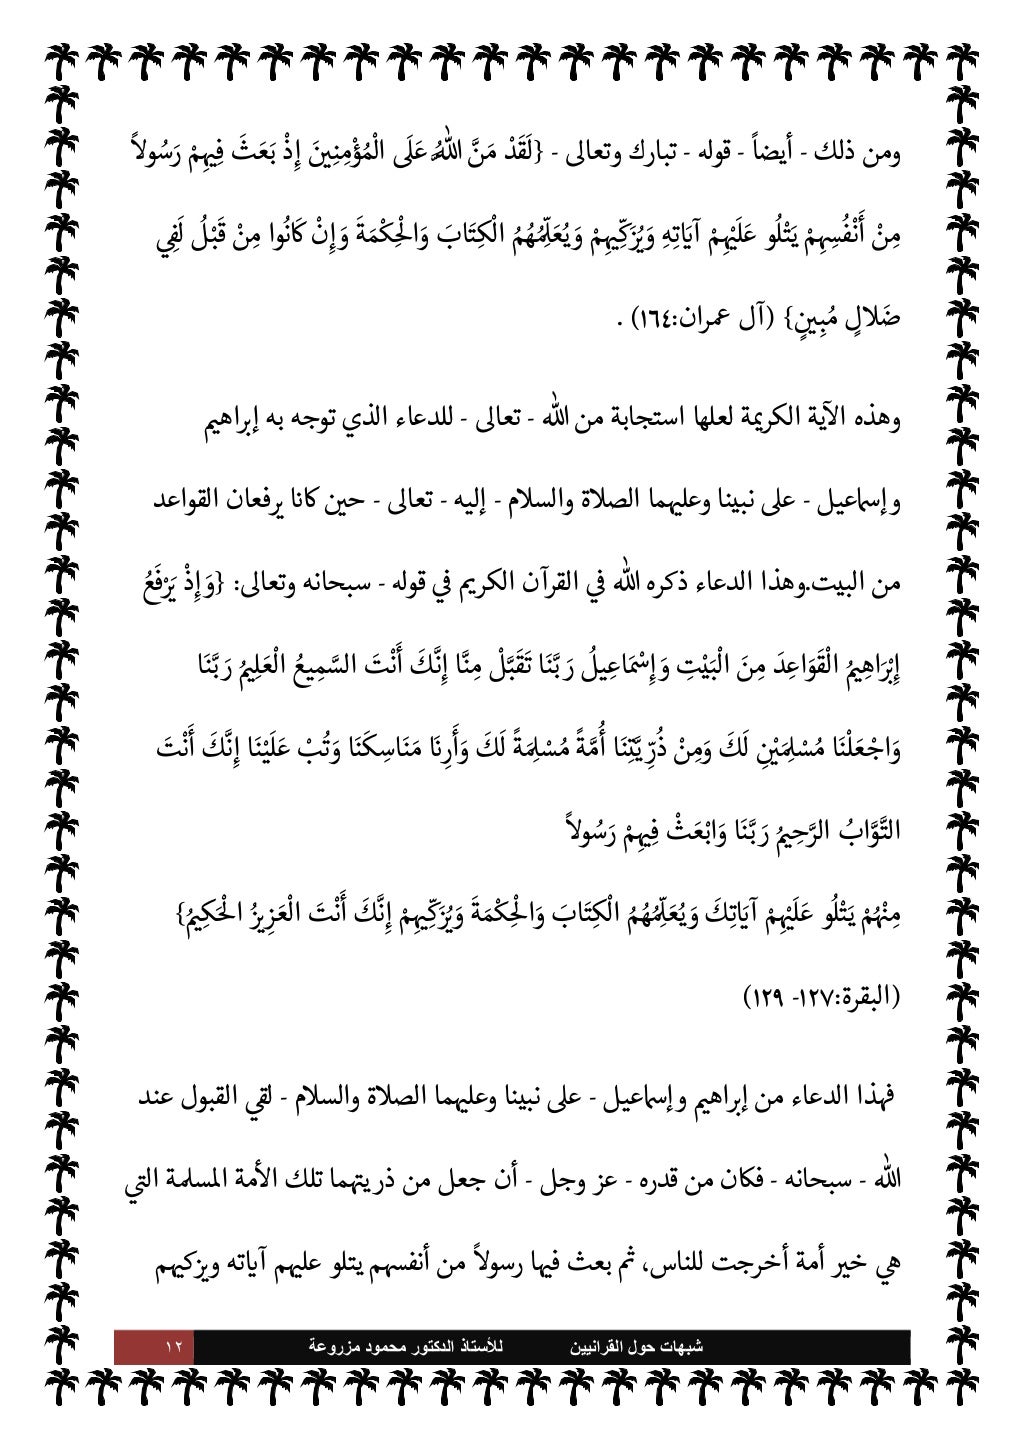 ومن ذلك - أيضاً - قوله - تبارك وتعالى - {لَقَدْ مَنَّ اللَّهُ عَلَى الْمُؤْمِنِينَ إِذْ بَعَثَ فِيهِمْ رَسُولاً
مِنْ أَنْفُسِهِمْ يَتْلُو عَلَيْهِمْ آيَاتِهِ وَيُزَكِّيهِمْ وَيُعَلِّمُهُمُ الْكِتَابَ وَالْحِكْمَةَ وَإِنْ كَانُوا مِنْ قَبْلُ لَفِي
ضَلالٍ مُبِينٍ} (آل عمران:١٦٤) .
وهذه الآية الكريمة لعلها استجابة من الله - تعالى - للدعاء الذي توجه به إبراهيم
وإسماعيل - على نبينا وعليهما الصلاة والسلام - إليه - تعالى - حين كانا يرفعان القواعد
من البيت.وهذا الدعاء ذكره الله في القرآن الكريم في قوله - سبحانه وتعالى: {وَإِذْ يَرْفَعُ
إِبْرَاهِيمُ الْقَوَاعِدَ مِنَ الْبَيْتِ وَإِسْمَاعِيلُ رَبَّنَا تَقَبَّلْ مِنَّا إِنَّكَ أَنْتَ السَّمِيعُ الْعَلِيمُ رَبَّنَا
وَاجْعَلْنَا مُسْلِمَيْنِ لَكَ وَمِنْ ذُرِّيَّتِنَا أُمَّةً مُسْلِمَةً لَكَ وَأَرِنَا مَنَاسِكَنَا وَتُبْ عَلَيْنَا إِنَّكَ أَنْتَ
التَّوَّابُ الرَّحِيمُ رَبَّنَا وَابْعَثْ فِيهِمْ رَسُولاً
مِنْهُمْ يَتْلُو عَلَيْهِمْ آيَاتِكَ وَيُعَلِّمُهُمُ الْكِتَابَ وَالْحِكْمَةَ وَيُزَكِّيهِمْ إِنَّكَ أَنْتَ الْعَزِيزُ الْحَكِيمُ}
(البقرة:١٢٧- ١٢٩)
فهذا الدعاء من إبراهيم وإسماعيل - على نبينا وعليهما الصلاة والسلام - لقي القبول عند
الله - سبحانه - فكان من قدره - عز وجل - أن جعل من ذريتهما تلك الأمة المسلمة التي
هي خير أمة أخرجت للناس، ثم بعث فيها رسولاً من أنفسهم يتلو عليهم آياته ويزكيهم
شبهات حول القرانيين للأستاذ الدكتور محمود مزروعة ١٢